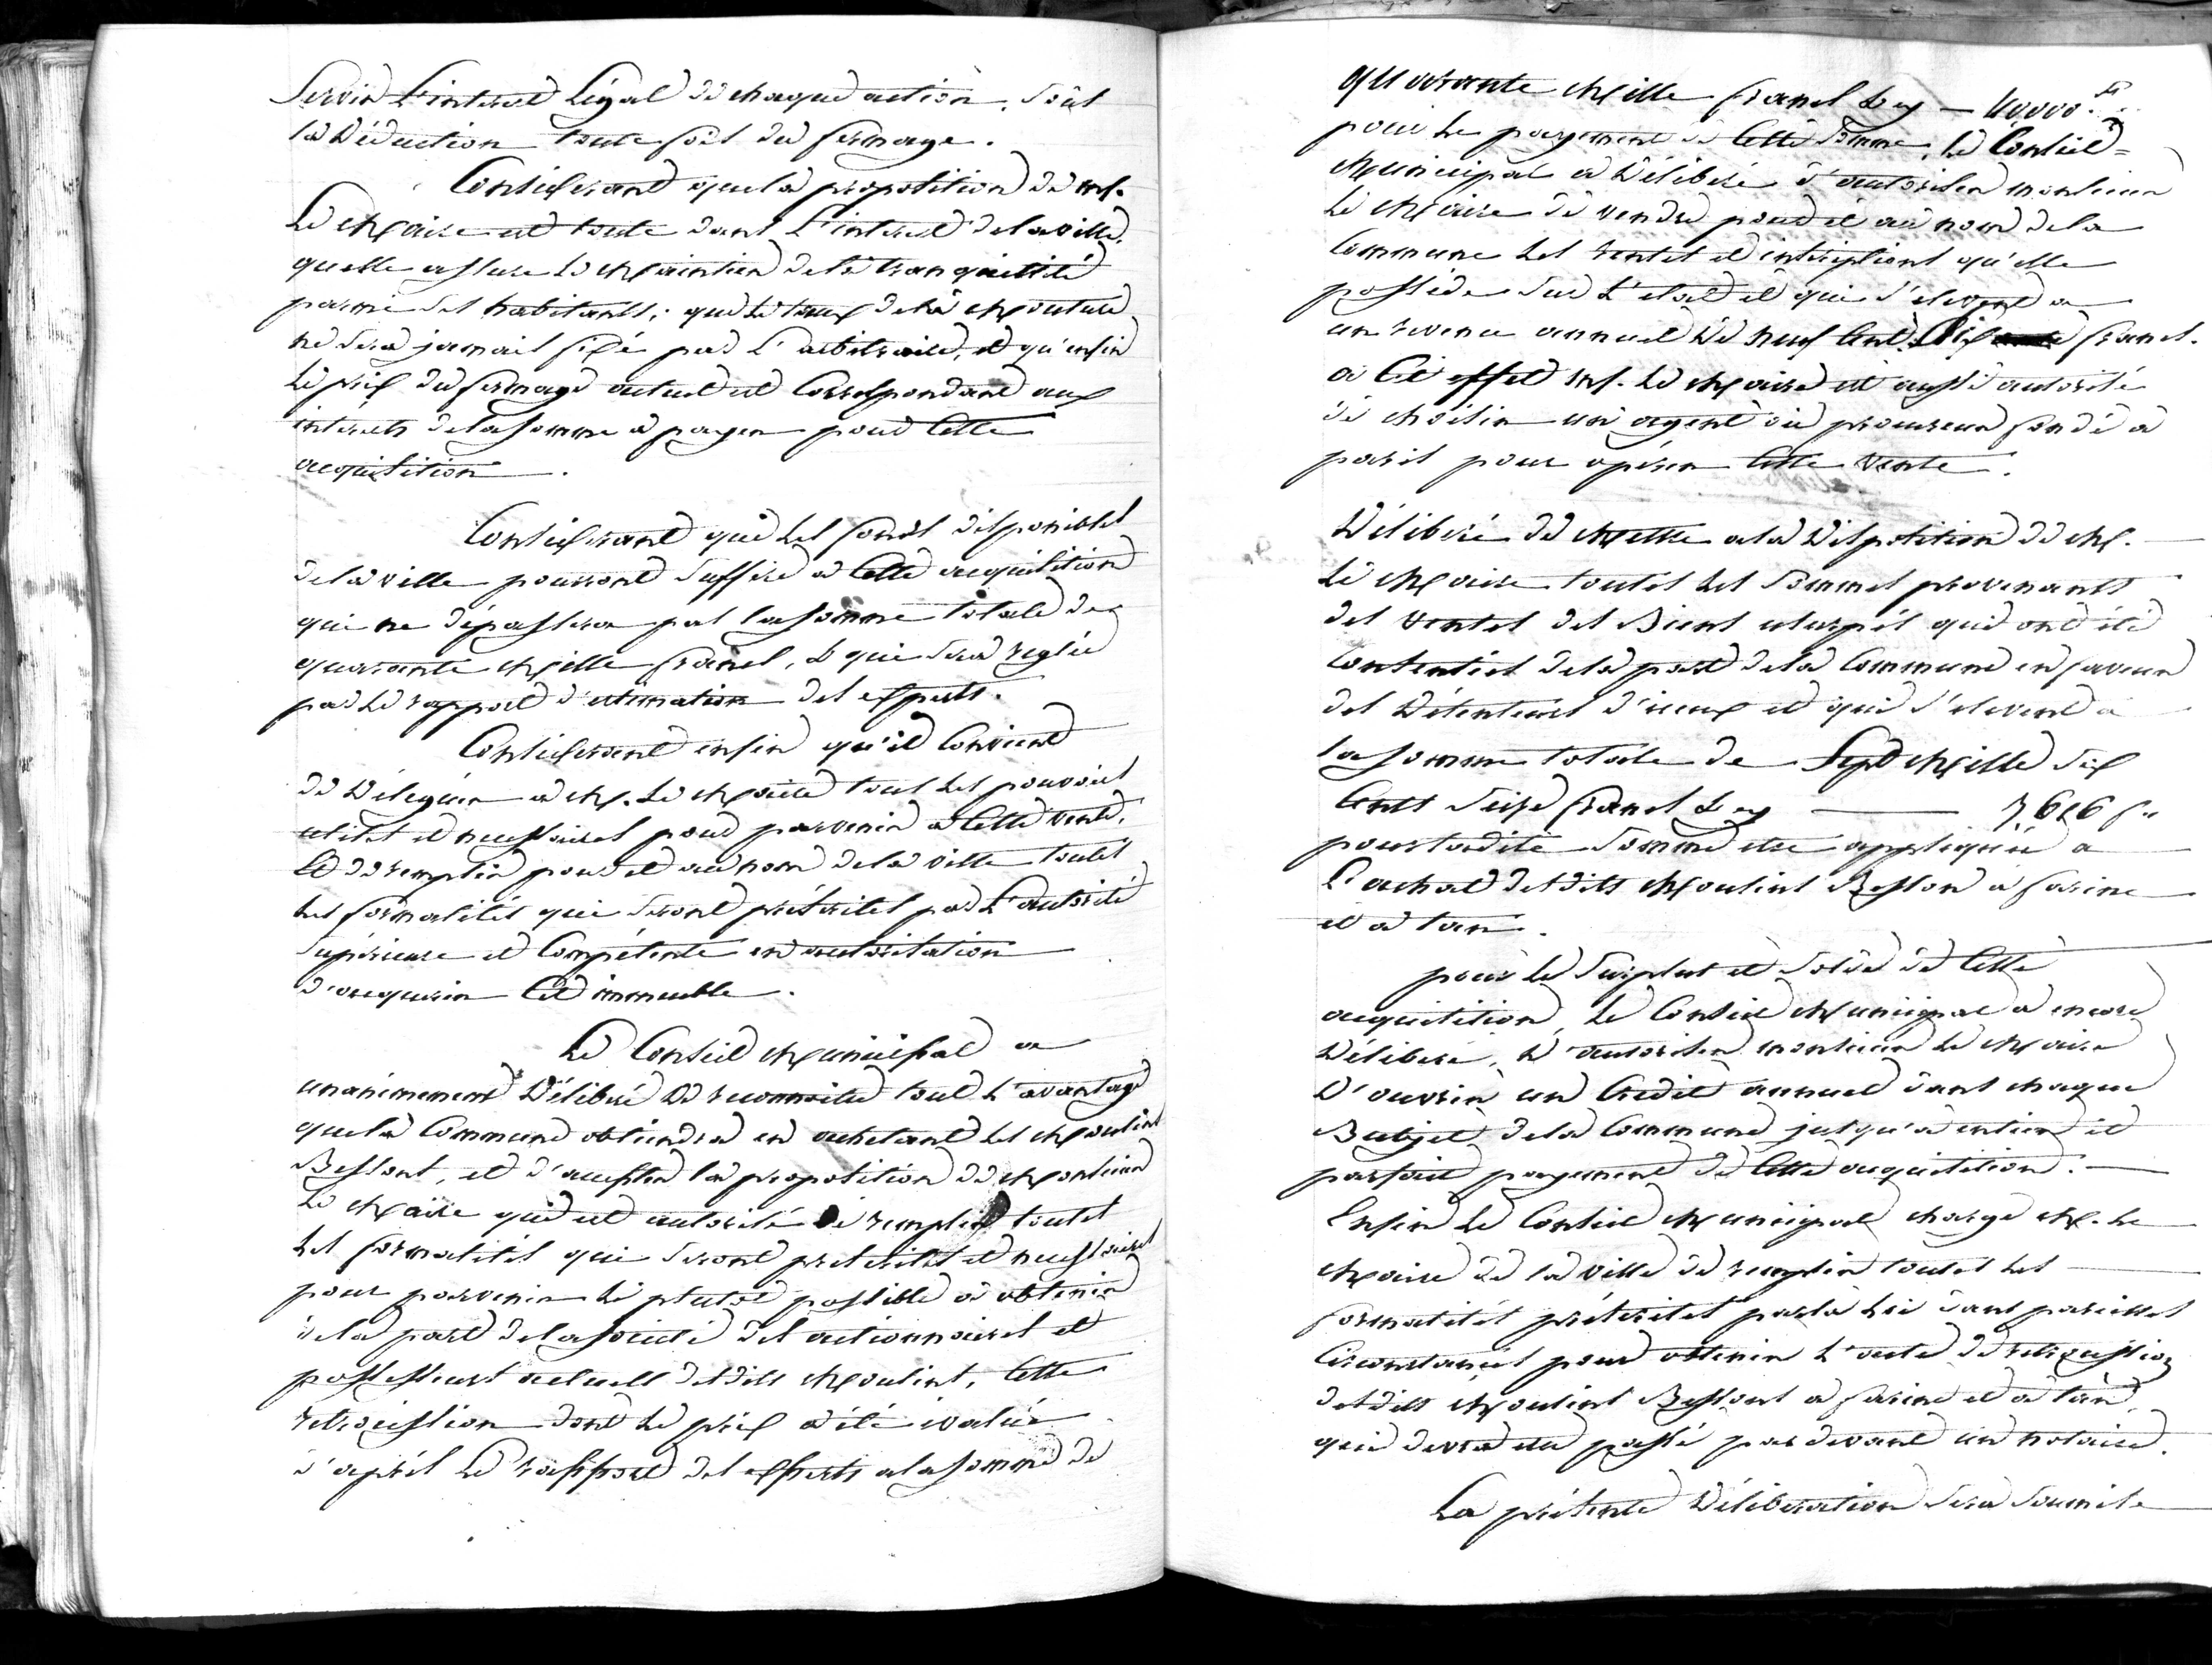 Servir L'interet Légal de chaque action, Sous
la Déduction toute fois du fermage.
Considerant que la proposition de mr.
Le Maire est toute dans L'interet de la ville,
quelle assure le Maintien de la tranquillité
parmi les habitants; que le taux de la Mouture
ne sera jamais fixé par L'arbitraire, et qu'enfin
le prix du fermage actuel est Correspondant aux
intérets de la somme à payer pour Cette
acquisition.
Considerant que les fonds disponibles
de la ville pourront Suffire à Cette acquisition
qui ne dépassera pas la somme totale de
quarrante Mille francs, Ce qui sera reglé
par le rapport d'estimation des experts.
Considerant enfin qu'il Convient
de Déleguer à M. Le Maire tous les pouvoirs
utiles et necessaires pour parvenir à Cette vente,
Et de remplir pour et au nom de la ville toutes
les formalités qui seront préscrites par L'autorité
Supérieure et Compétente en autorisation
d'acquerir Cet immeuble.
Le Conseil Municipal a
unanimement Délibéré de reconnaitre tout L'avantage
que la Commune obtiendra en achetant les Moulins
Bessons, et d'accepter la proposition de Monsieur
Le Maire qui est autorisé de remplir toutes
les formalités qui seront prescrites et necessaires
pour parvenir le plutot possible à obtenir
de la part de la société des actionnaires et
possesseurs actuels desdits Moulins, Cette
retrocession dont le prix a été évalué
d'après Le rapport des experts à la somme de
quarante Mille francs Cy — 40,000 fr.
pour Le payement de Cette Somme, Le Conseil
Municipal a Délibéré d'autoriser monsieur
Le Maire de vendre pour et au nom de la
Commune les rentes et inscriptions qu'elle
possède Sur L'etat et qui s'elevent a
un revenu annuel de neuf Cent Dix francs.
à Cet effet mr. Le Maire est aussi autorisé
de choisir un agent où procureur fondé à
paris pour opérer Cette vente.
Délibéré de Mettre a la Disposition de M.
Le Maire toutes les Sommes provenants
des ventes des Biens usurpés qui ont été
Consenties de la part de la Commune en faveur
des Détenteurs d'iceux et qui s'elevent à
la somme totale de Sept Mille Six
Cents Seize francs Cy — 7,616 f.
pour ladite Somme etre appliquée a
L'achat desdits Moulins Besson à farine
et à tan.
pour le Surplus et Solde de Cette
acquisition, Le Conseil Municipal a encore
Délibéré, D'autoriser monsieur Le Maire
D'ouvrir un Credit annuel dans chaque
Budjet de la Commune jusqu'à entier et
parfait payement de Cette acquisition.
Enfin Le Conseil Municipal charge M. Le
Maire de la ville de remplir toutes les
formalités préscrites par la Loi dans pareilles
Circonstances pour obtenir L'acte de retrocession
desdits Moulins Bessons à farine et à tan,
qui devra etre passé par devant un notaire.
La présente Délibération sera soumise